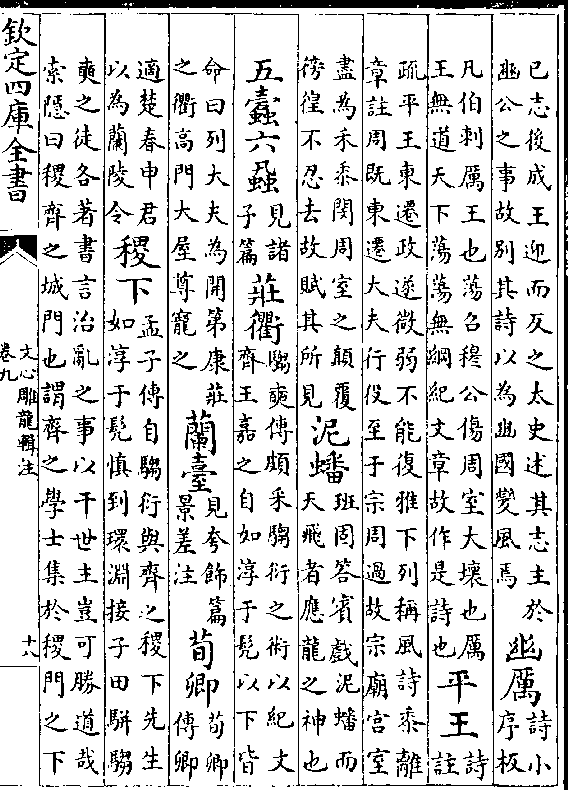 已志後成王迎而反之太史述其志主於
豳公之事故別其詩以為豳國變風焉
幽厲
詩小
序板
凡伯刺厲王也蕩召穆公傷周室大壞也厲
王無道天下蕩蕩無綱紀文章故作是詩也
平王
詩
註
疏平王東遷政遂微弱不能復雅下列稱風詩黍離
章註周既東遷大夫行役至于宗周過故宗廟宮室
盡為禾黍閔周室之顛覆
徬徨不忍去故賦其所見
泥蟠
班固答賓戲泥蟠而
天飛者應龍之神也
五蠹六蝨
見諸
子篇
莊衢
騶奭傳頗采騶衍之術以紀文
齊王嘉之自如淳于髡以下皆
命曰列大夫為開第康莊
之衢高門大屋尊寵之
蘭臺
見夸飾篇
景差注
荀卿
荀卿
傳卿
適楚春申君
以為蘭陵令
稷下
孟子傳自騶衍與齊之稷下先生
如淳于髡慎到環淵接子田駢騶
奭之徒各著書言治亂之事以干世主豈可勝道哉
索隱曰稷齊之城門也謂齊之學士集於稷門之下
欽定四庫全書
文心雕龍輯注
卷九
十八